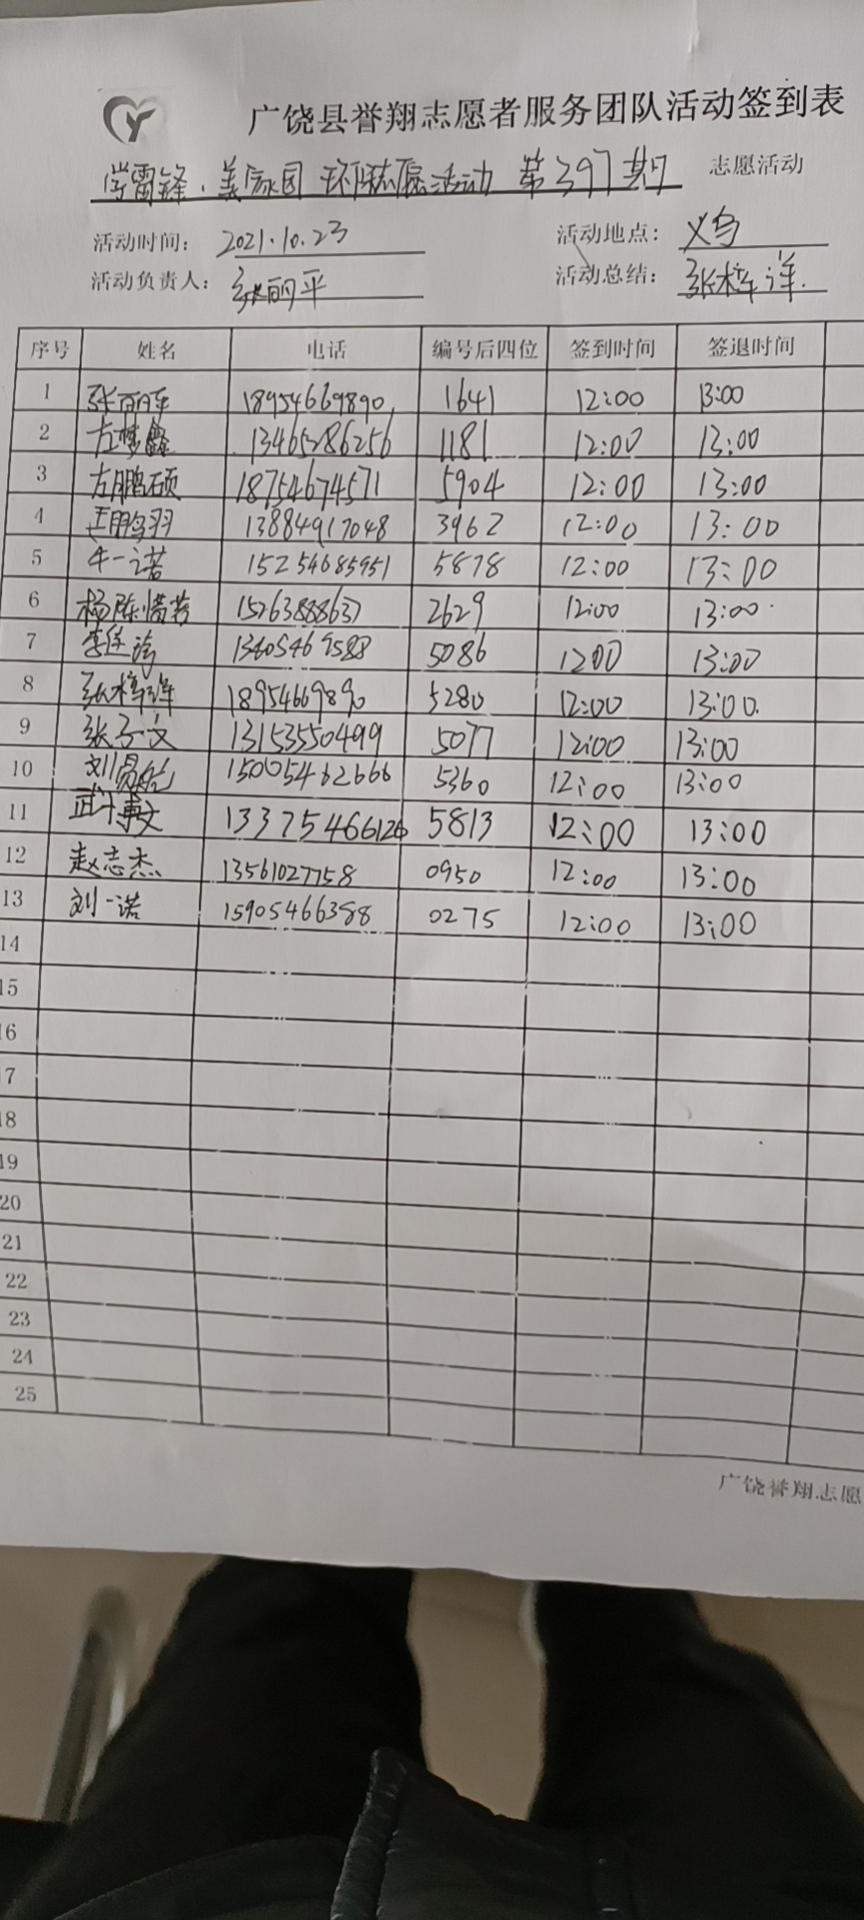 广饶县誉翔志愿者服务团队活动签到表
学雷锋·美家园 环保志愿活动 第397期 志愿活动
活动时间: 2021.10.23 活动地点: 义乌
活动负责人: 张丽平 活动总结: 张梓洋.
序号 姓名 电话 编号后四位 签到时间 签退时间
1 张丽平 18954669890 1641 12:00 13:00
2 左梦鑫 13465286256 1181 12:00 13:00
3 左鹏硕 18754674571 5904 12:00 13:00
4 鹏羽 13884917048 3962 12:00 13:00
5 牛一诺 15254685951 5878 12:00 13:00
6 杨陈惜若 15263888637 2629 12:00 13:00
7 李 13605469588 5086 1200 13:00
8 张梓洋 18954669890 5280 12:00 13:00.
9 张子文 13153550499 5077 12:00 13:00
10 刘 15005462666 5360 12:00 13:00
11 武博文 13375466126 5813 12:00 13:00
12 赵志杰 13561027758 0950 12:00 13:00
13 刘一诺 15905466388 0275 12:00 13:00
14
15
16
17
18
19
20
21
22
23
24
25
广饶誉翔志愿